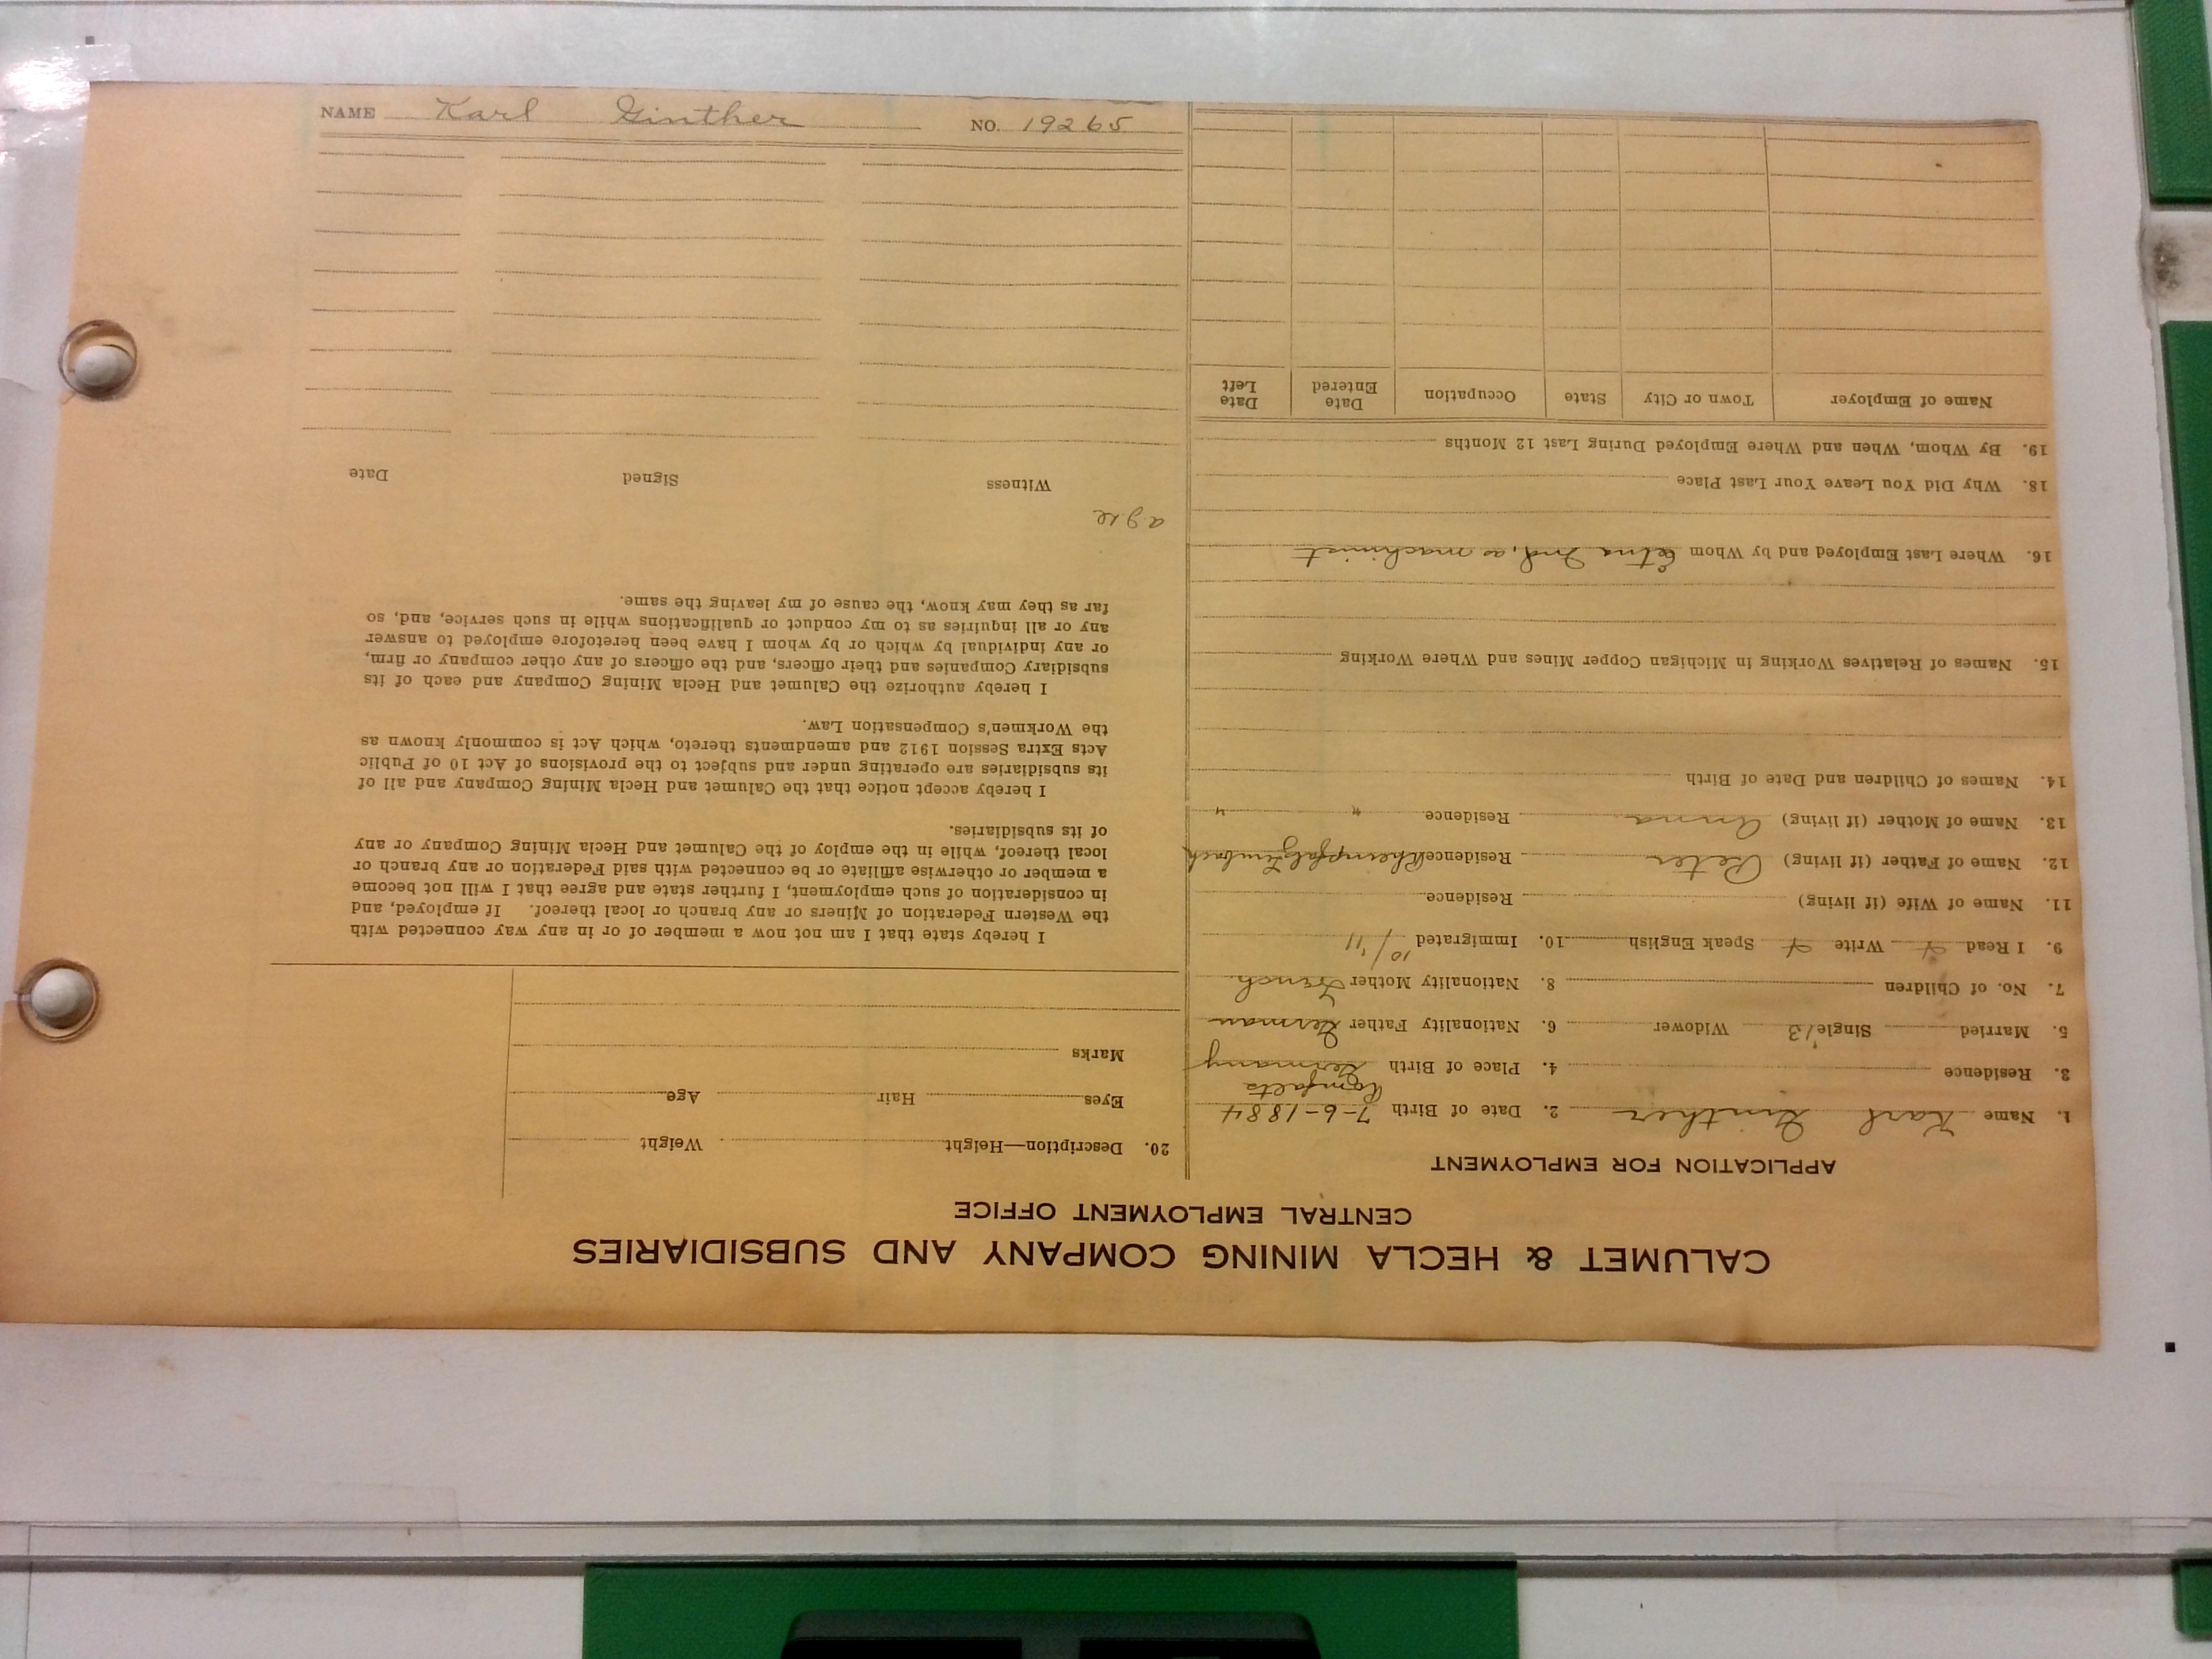 CALUMET & HECLA MINING COMPANY AND SUBSIDIARIES
CENTRAL EMPLOYMENT OFFICE
APPLICATION FOR EMPLOYMENT
1. Name Karl Ginther 2. Date of Birth 7-6-1884
3. Residence 4. Place of Birth Germany
5. Married Single '13 Widower 6. Nationality Father German
7. No. of Children 8. Nationality Mother French
9. I Read Write Speak English 10. Immigrated 10/'11
11. Name of Wife (if living) Residence
12. Name of Father (if living) Peter Residence
13. Name of Mother (if living) Anna Residence " "
14. Names of Children and Date of Birth
15. Names of Relatives Working in Michigan Copper Mines and Where Working
16. Where Last Employed and by Whom Etna Ind, as machinist
18. Why Did You Leave Your Last Place
19. By Whom, When and Where Employed During Last 12 Months
Name of Employer Town or City State Occupation Date Entered Date Left
20. Description—Height Weight
Eyes Hair Age
Marks
I hereby state that I am not now a member of or in any way connected with
the Western Federation of Miners or any branch or local thereof. If employed, and
in consideration of such employment, I further state and agree that I will not become
a member or otherwise affiliate or be connected with said Federation or any branch or
local thereof, while in the employ of the Calumet and Hecla Mining Company or any
of its subsidiaries.
I hereby accept notice that the Calumet and Hecla Mining Company and all of
its subsidiaries are operating under and subject to the provisions of Act 10 of Public
Acts Extra Session 1912 and amendments thereto, which Act is commonly known as
the Workmen's Compensation Law.
I hereby authorize the Calumet and Hecla Mining Company and each of its
subsidiary Companies and their officers, and the officers of any other company or firm,
or any individual by which or by whom I have been heretofore employed to answer
any or all inquiries as to my conduct or qualifications while in such service, and, so
far as they may know, the cause of my leaving the same.
Witness Signed Date
NAME Karl Ginther NO. 19265